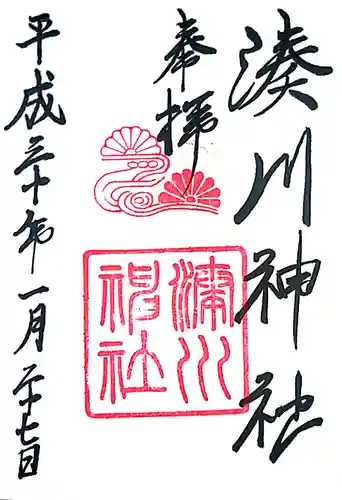 奉拝
湊川神社
湊川神社
平成三十年一月二十七日